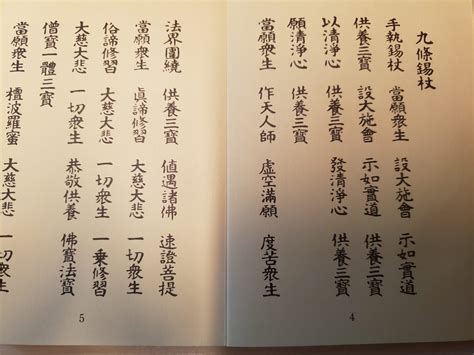 九條錫杖
手執錫杖 當願衆生 設大施會 示如實道
供養三寶 設大施會 示如實道 供養三寶
以清淨心 供養三寶 發清淨心 供養三寶
願清淨心 供養三寶
當願衆生 作天人師 虛空滿願 度苦衆生
4
法界圍繞 供養三寶 値遇諸佛 速證菩提
當願衆生 眞諦修習 大慈大悲 一切衆生
俗諦修習 大慈大悲 一切衆生 一乘修習
大慈大悲 一切衆生 恭敬供養 佛寶法寶
僧寶一體三寶
當願衆生 檀波羅蜜 大慈大悲 一切衆生
5